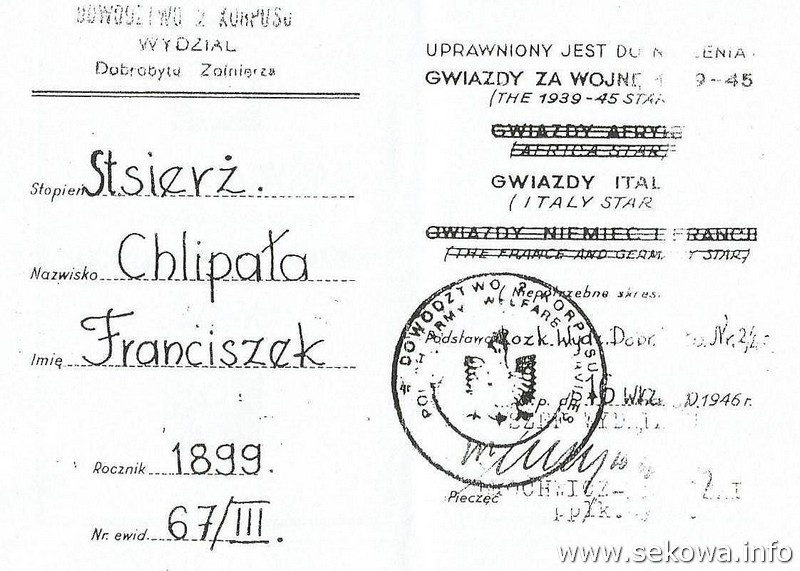 DOWÓDZTWO 2 KORPUSU
WYDZIAŁ
Dobrobytu Żołnierza
Stopień Stsierż.
Nazwisko Chlipała
Imię Franciszek
Rocznik 1899.
Nr. ewid. 67/III.
UPRAWNIONY JEST DO N
GWIAZDY ZA WOJNĘ 1939-45
(THE 1939-45 STAR
GWIAZDY AFRYK
(AFRICA STAR)
GWIAZDY ITAL
(ITALY STAR
GWIAZDY NIEMIEC I FRANCJI
(THE FRANCE AND GERMANY STAR)
Niepotrzebne skreś.
Podstawa Rozk. Wydz. Dobr Nr. 2/
10 Wrz. 1946 r.
SZEF WYDZIAŁU
Pieczęć
ppłk.
DOWÓDZTWO 2 KORPUSU
POLISH ARMY WELFARE SERVICES
www.sekowa.info